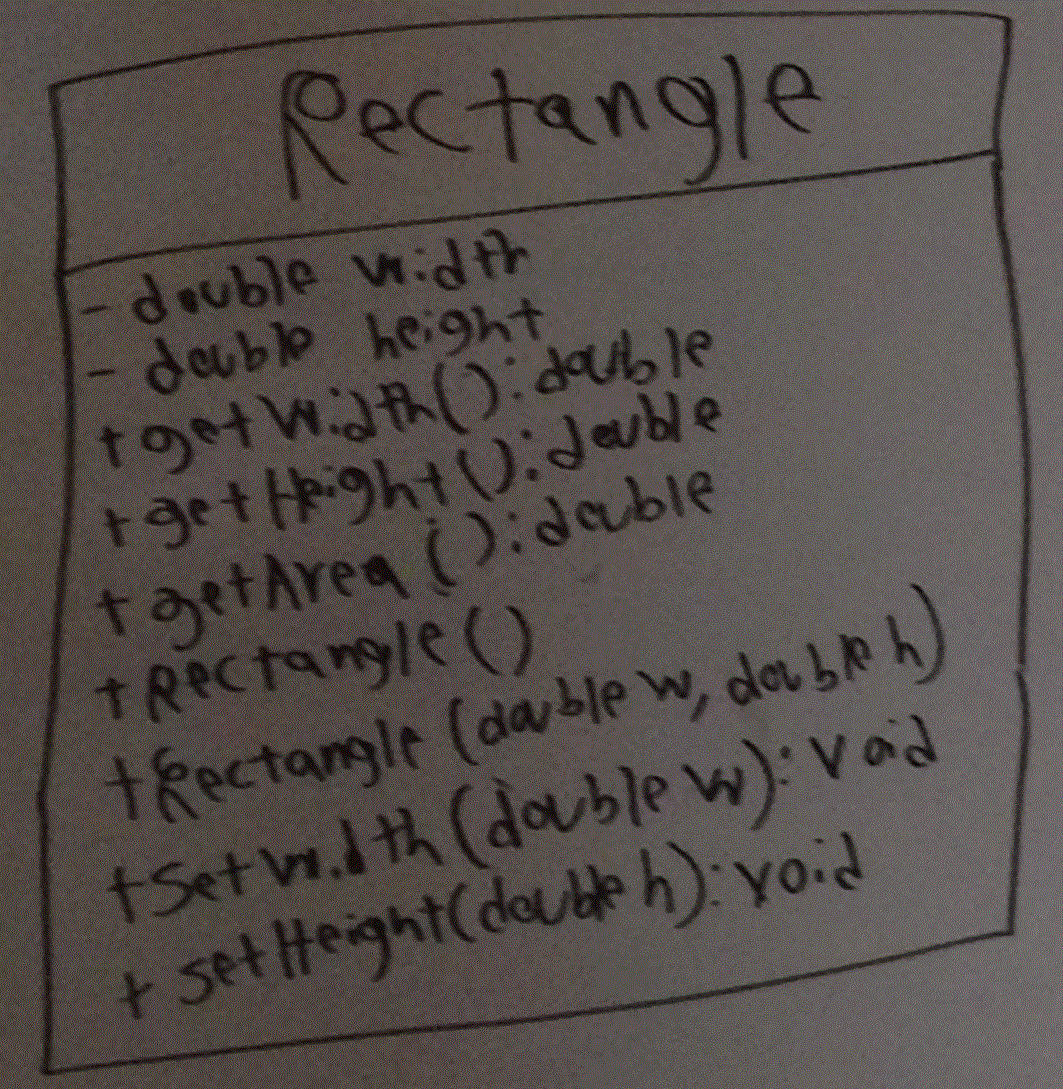 Rectangle
- double width
- double height
+ getWidth(): double
+ getHeight(): double
+ getArea(): double
+ Rectangle()
+ Rectangle (double w, double h)
+ SetWidth(double w): void
+ setHeight(double h): void